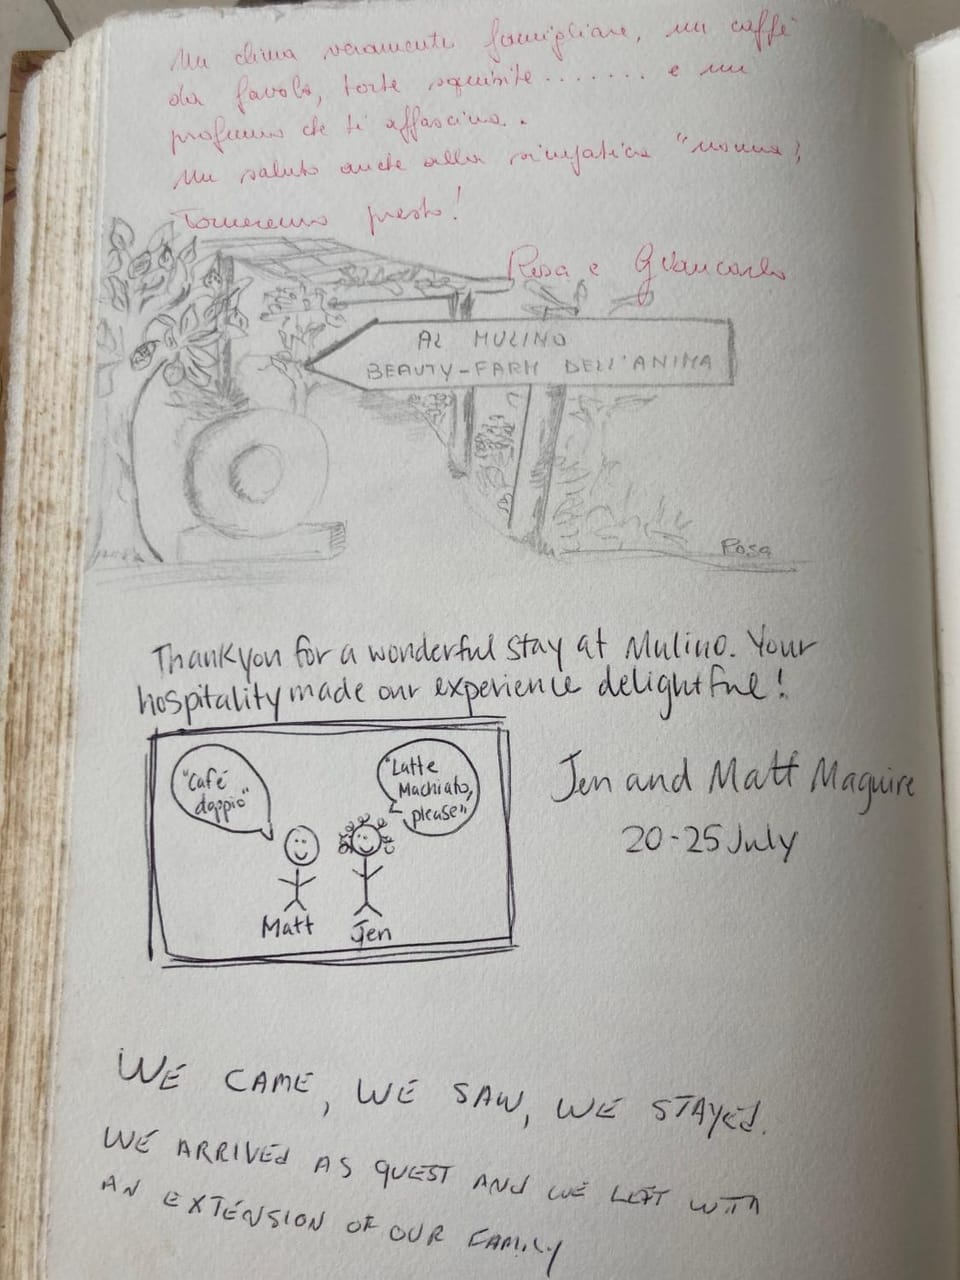 Un clima veramente famigliare, un caffè
da favola, torte squisite........ e un
profumo che ti affascina.
Un saluto anche alla simpatica "nonna",
Torneremo presto!
Rosa e Giancarlo
AL MULINO
BEAUTY-FARM DELL'ANIMA
Rosa
Thankyou for a wonderful stay at Mulino. Your
hospitality made our experience delightful!
"Café
doppio"
"Latte
Machiato,
please"
Matt
Jen
Jen and Matt Maguire
20-25 July
WE CAME, WE SAW, WE STAYED.
WE ARRIVED AS QUEST AND WE LEFT WITH
AN EXTENSION OF OUR FAMILY